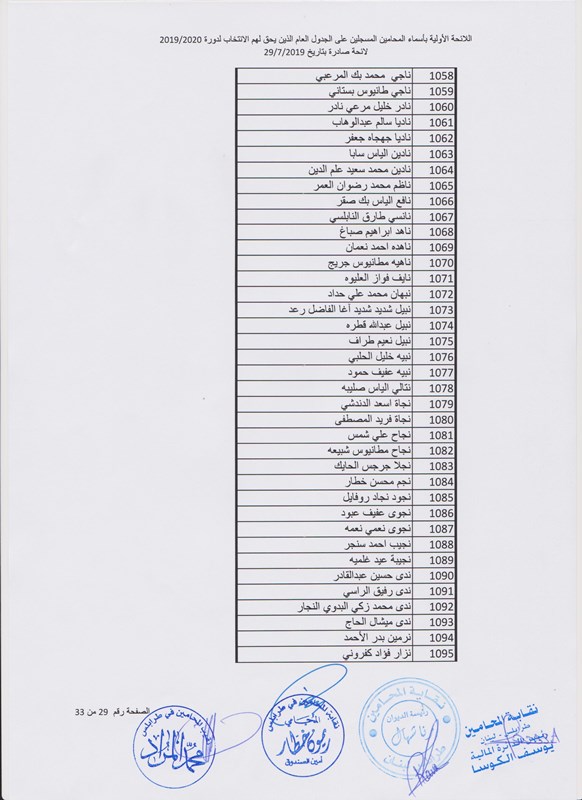 اللائحة الأولية بأسماء المحامين المسجلين على الجدول العام الذين يحق لهم الانتخاب لدورة 2019/2020
لائحة صادرة بتاريخ 29/7/2019
1058 ناجي محمد بك المرعبي
1059 ناجي طانيوس بستاني
1060 نادر خليل مرعي نادر
1061 ناديا سالم عبدالوهاب
1062 ناديا جهجاه جعفر
1063 نادين الياس سابا
1064 نادين محمد سعيد علم الدين
1065 ناظم محمد رضوان العمر
1066 نافع الياس بك صقر
1067 نانسي طارق النابلسي
1068 ناهد ابراهيم صباغ
1069 ناهده احمد نعمان
1070 ناهيه مطانيوس جريج
1071 نايف فواز العليوه
1072 نبهان محمد علي حداد
1073 نبيل شديد شديد أغا الفاضل رعد
1074 نبيل عبدالله قطره
1075 نبيل نعيم طراف
1076 نبيه خليل الحلبي
1077 نبيه عفيف حمود
1078 نتالي الياس صليبه
1079 نجاة اسعد الدندشي
1080 نجاة فريد المصطفى
1081 نجاح علي شمس
1082 نجاح مطانيوس شبيعه
1083 نجلا جرجس الحايك
1084 نجم محسن خطار
1085 نجود نجاد روفايل
1086 نجوى عفيف عبود
1087 نجوى نعمي نعمه
1088 نجيب احمد سنجر
1089 نجيبة عيد غلميه
1090 ندى حسين عبدالقادر
1091 ندى رفيق الراسي
1092 ندى محمد زكي البدوي النجار
1093 ندى ميشال الحاج
1094 نرمين بدر الأحمد
1095 نزار فؤاد كفروني
الصفحة رقم 29 من 33
نقابة المحامين
طرابلس - لبنان
المالية
يوسف الكوسا
نقابة المحامين
رئيسة الديوان
طرابلس لبنان
نقابة المحامين في طرابلس
المحامي
ريمون خطار
أمين الصندوق
نقابة المحامين في طرابلس
محمد المراد